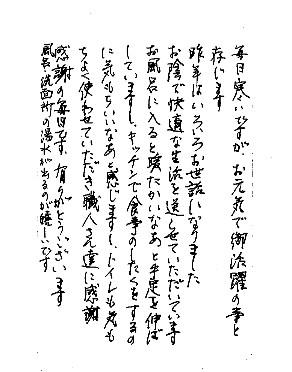 毎日寒いですが、お元気で御活躍の事と
存じます
昨年はいろいろお世話になりました
お陰で快適な生活を送らせていただいています
お風呂に入ると暖たかいなあと手足を伸ば
していますし、キッチンで食事のしたくをするの
に気もちいいなあと感じますし、トイレも気も
ちよく使わせていただき職人さん達に感謝
感謝の毎日です。有りがとうございます
風呂、洗面所の湯水が出るのが嬉しいです